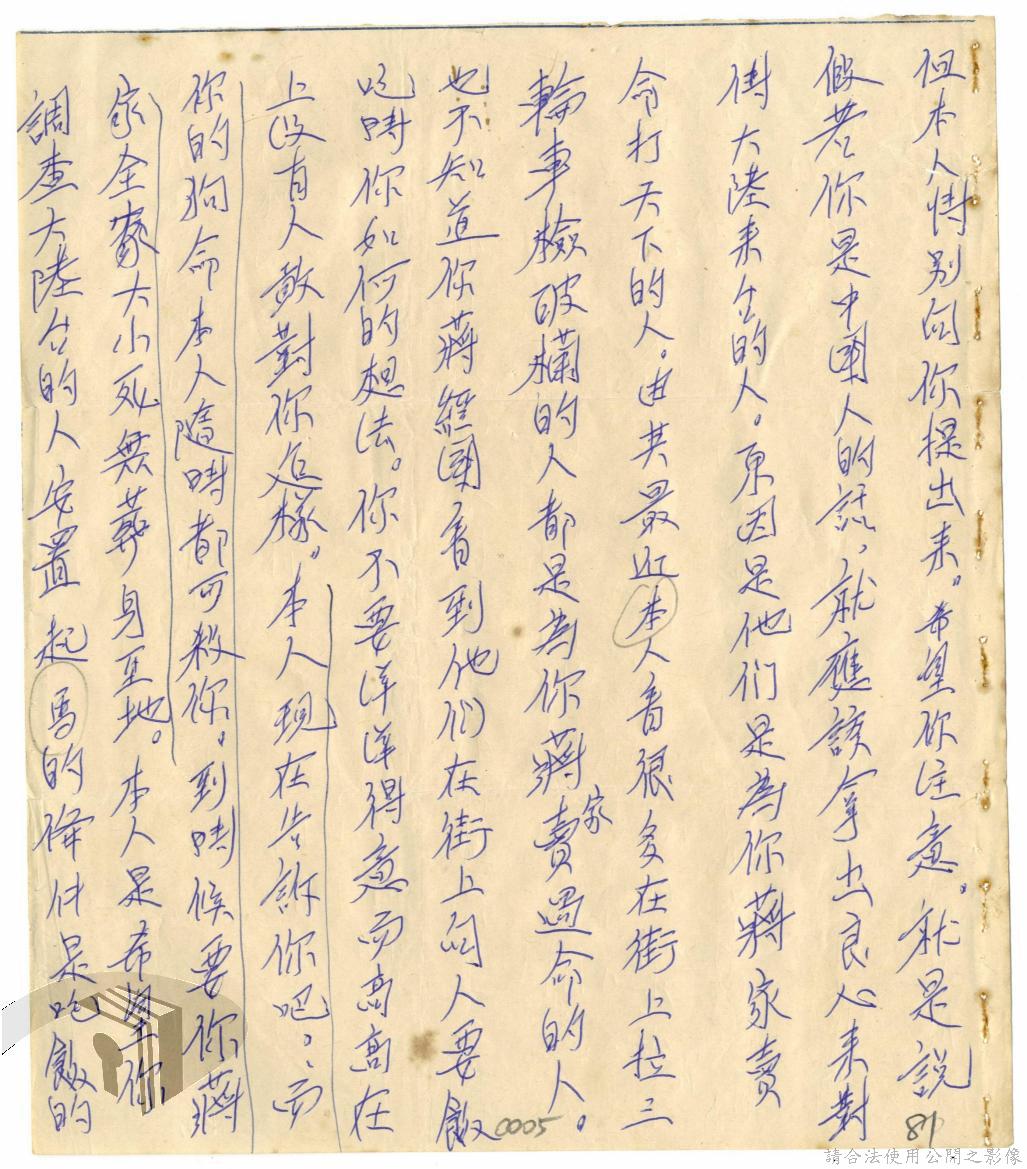 但本人特別向你提出來。希望你注意。就是說
假若你是中國人的話，就應該拿出良心來對
待大陸來台的人。原因是他们是為你蔣家賣
命打天下的人。由其最近本人看很多在街上拉三
輪車檢破欄的人都是為你蔣家賣過命的人。
也不知道你蔣經國看到他们在街上向人要飯
吃時你如何的想法。你不要洋洋得意而高高在
上沒有人敢對你怎樣。本人現在告訴你吧。而
你的狗命本人隨時都可殺你。到時候要你蔣
家全家大小死無葬身至地。本人是希望你
調查大陸台的人安置起碼的條件是吃飯的
0005
81
請合法使用公開之影像